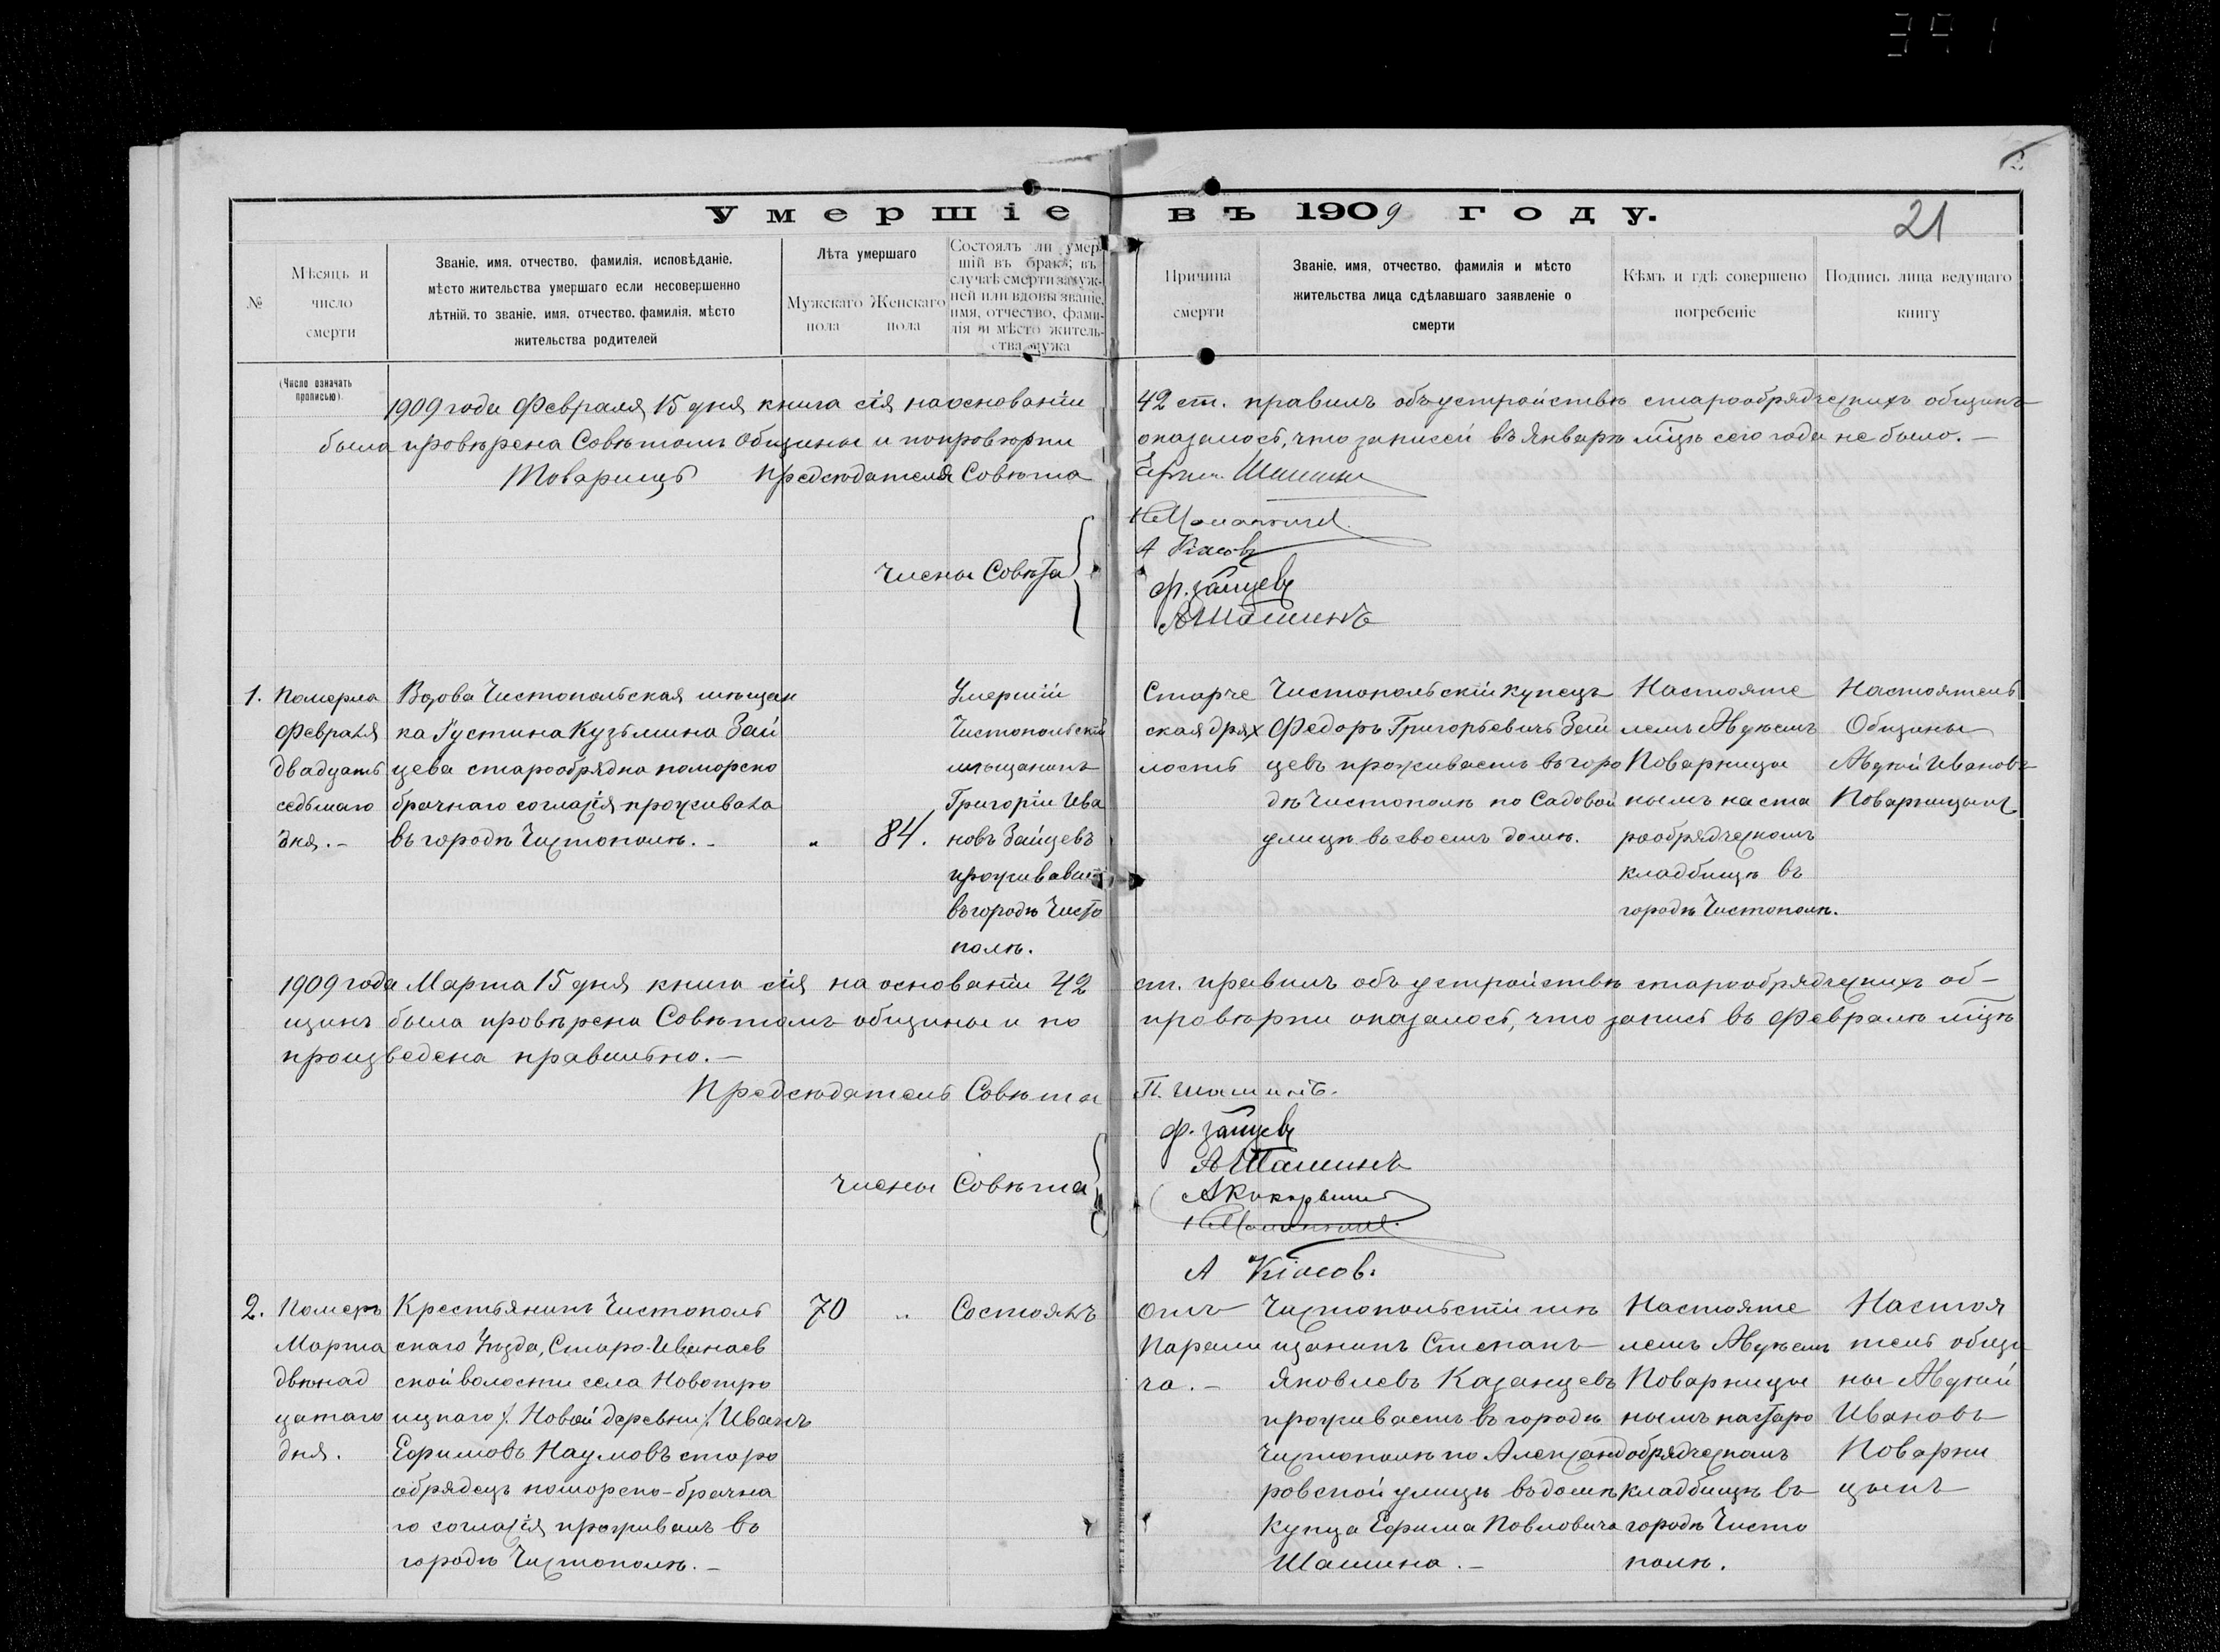 391
Умершіе въ 1909 году.
21
№
Мѣсяцъ и
число
смерти
Званіе, имя, отчество, фамилія, исповѣданіе,
мѣсто жительства умершаго если несовершенно
лѣтній, то званіе, имя, отчество, фамилія, мѣсто
жительства родителей
Лѣта умершаго
Мужскаго
пола
Женскаго
пола
Состоялъ ли умер-
шій въ бракѣ; въ
случаѣ смерти замуж-
ней или вдовы званіе,
имя, отчество, фами-
лія и мѣсто житель-
ства мужа
Причина
смерти
Званіе, имя, отчество, фамилія и мѣсто
жительства лица сдѣлавшаго заявленіе о
смерти
Кѣмъ и гдѣ совершено
погребеніе
Подпись лица ведущаго
книгу
(Число означать
прописью)
1909 года Февраля 15 дня книга сія на основаніи 42 ст. правилъ объ устройствѣ старообрядческихъ общинъ
была провѣрена Совѣтомъ Общины и по провѣрки оказалось, что записей въ Январѣ мѣцѣ сего года не было. –
Товарищъ Предсѣдателя Совѣта Шашинъ
Члены Совѣта
А Кіасовъ
Ф. Зайцевъ
А Шашинъ
1.
Померла
Февраля
двадцать
седьмаго
дня. –
Вдова Чистопольская мѣщан
ка Густина Кузьмина Зай
цева старообрядка поморско
брачнаго согласія проживала
въ городѣ Чистополѣ. –
„
84.
Умершій
Чистопольскій
мѣщанинъ
Григорій Ива
новъ Зайцевъ
проживавш
въ городѣ Чисто
полѣ.
Старче
ская дрях
лость
Чистопольскій купецъ
Федоръ Григорьевичъ Зай
цевъ проживаетъ въ горо
дѣ Чистополѣ по Садовой
улицѣ въ своемъ домѣ.
Настояте
лемъ Авдѣемъ
Поварницы
нымъ на ста
рообрядческомъ
кладбищѣ въ
городѣ Чистополѣ.
Настоятель
Общины
Авдѣй Ивановъ
Поварницынъ
1909 года Марта 15 дня книга сія на основаніи 42 ст. правилъ объ устройствѣ старообрядческихъ об–
щинъ была провѣрена Совѣтомъ общины и по провѣрки оказалось, что запись въ Февралѣ мѣцѣ
произведена правильно. –
Предсѣдатель Совѣта П. Шашинъ.
Члены Совѣта
Ф. Зайцевъ
А Шашинъ
А Кіасов.
2.
Померъ
Марта
двѣнад
цатаго
дня.
Крестьянинъ Чистополь
скаго Уѣзда, Старо-Иванаев
ской волости села Новотро
ицкаго /. Новой деревни /. Иванъ
Ефимовъ Наумовъ старо
обрядецъ поморско-брачна
го согласія проживалъ въ
городѣ Чистополѣ. –
70
„
Состоялъ
Отъ
Парали
ча. –
Чистопольскій мѣ
щанинъ Степанъ
Яковлевъ Казанцевъ
проживаетъ въ городѣ
Чистополѣ по Александ
ровской улицѣ въ домѣ
Купца Ефима Павловича
Шашина. –
Настояте
лемъ Авдѣемъ
Поварницы
нымъ на старо
обрядческомъ
кладбищѣ въ
городѣ Чисто
полѣ.
Настоя
тель общи
ны Авдѣй
Ивановъ
Поварни
цынъ